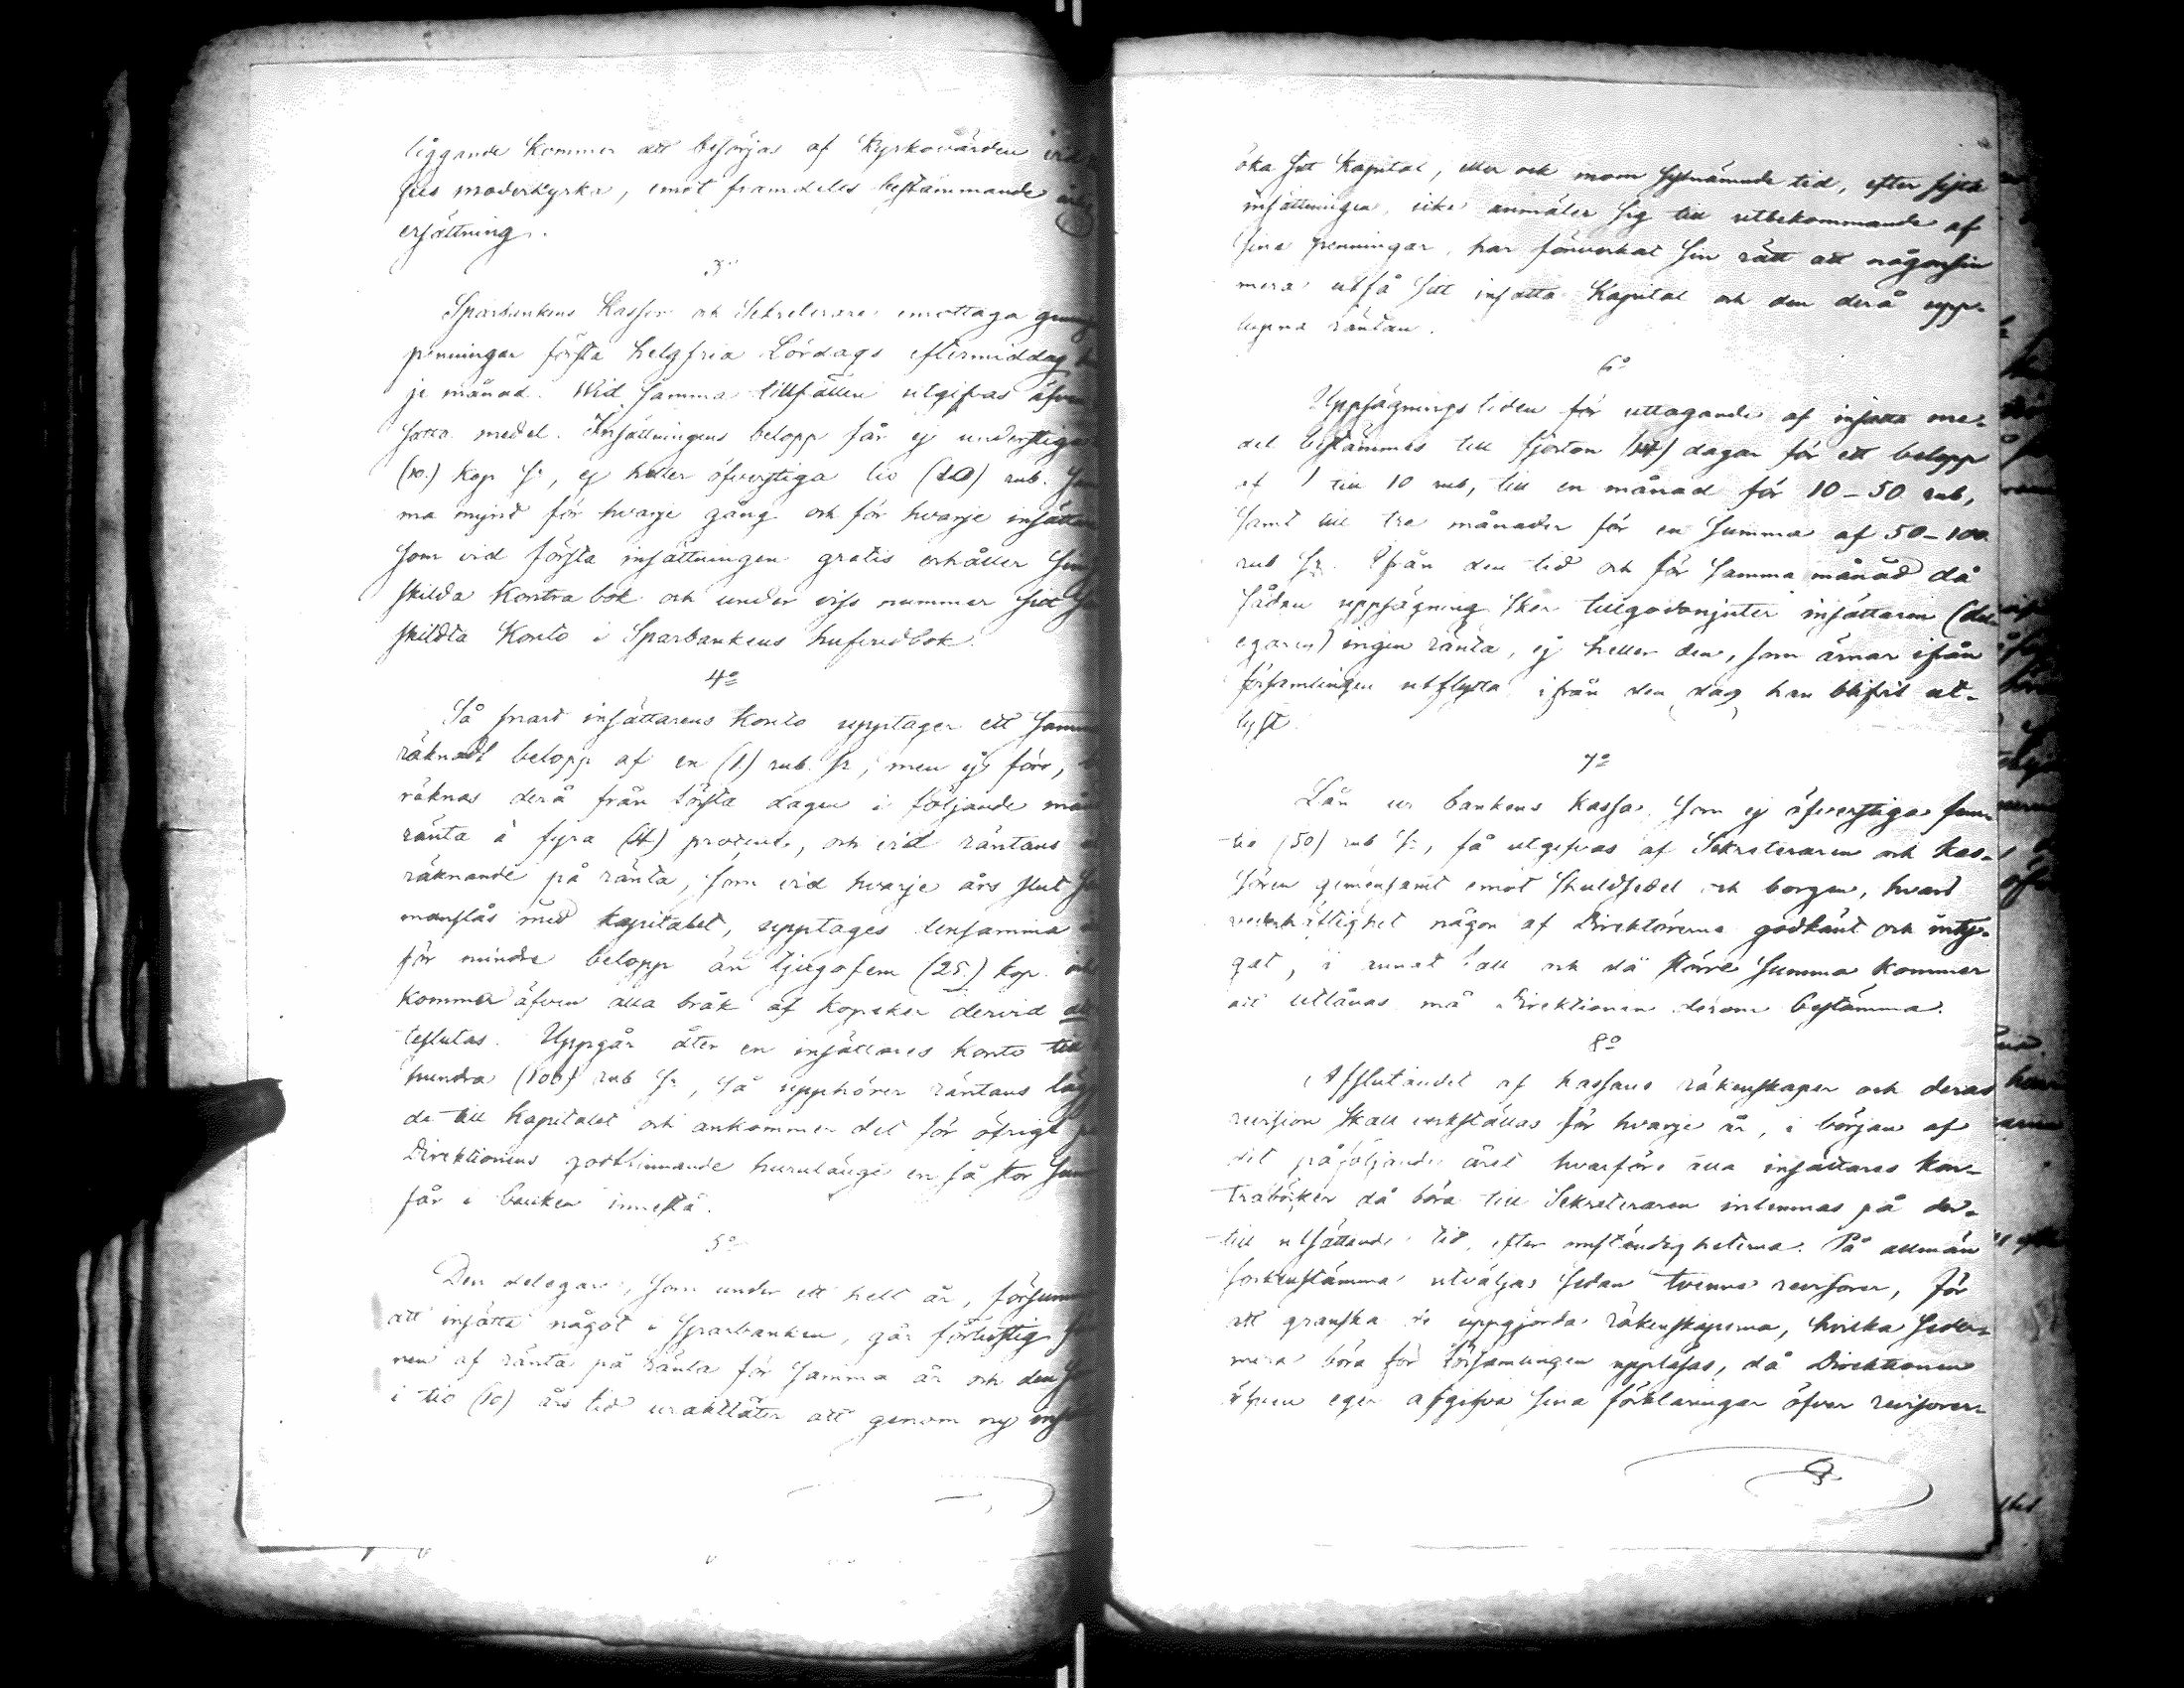 liggande kommer att besörjas af Kyrkovärden vid
sies moderkyrka, emot framdeles bestämmande årlig
ersättning.
3o
Sparbankens Kassör och Sekreterare emottaga
penningar första helgfria Lördags eftermiddag
je månad. Wid samma tillfällen utgifvas äfven
satta medel. Insättningens belopp får ej understiga
(10.) kop Sr, ej heller öfverstiga tio (10) rub.
ma mynd för hvarje gång och för hvarje insättare
som vid första insättningen gratis erhåller
skilda Kontra bok och under viss nummer sitt
skildta Konto i Sparbankens hufvudbok.
4o
Så snart insättarens Konto upptager ett samman
räknadt belopp af en (1.) rub. Sr, men ej förr,
räknas derå från första dagen i följande mån
ränta à fyra (4) procent, och vid räntans
räknande på ränta, som vid hvarje års slut
manslås med kapitalet, upptages densamma
för mindre belopp än tjugofem (25.) kop.
kommer äfven alla bråk af kopeker dervid
teslutas. Uppgår åter en insättares konto till
hundra (100) rub Sr, så upphörer räntans läg
de till Kapitalet och ankommer det för öfrigt
Direktionens godtfinnande hurulänge en så stor
får i banken innestå.
5o
Den delegare, som under ett helt år, försum
att insätta något i Sparbanken, går förlustig
nen af ränta på ränta för samma år och den
i tio (10) års tid uraktlåter att genom ny
öka sitt Kapital, eller och inom sistnämnde tid, efter sista
insättningen, icke anmäler sig till utbekommande af
sina penningar, har förverkat sin rätt att någonsin
mera utfå sitt insatta Kapital och den derå upp-
lupna räntan.
6o
Uppsägnings tiden för uttagande af insatta me-
del bestämmes till fjorton (14) dagar för ett belopp
af 1 till 10 rub, till en månad för 10-50 rub,
samt till tre månader för en summa af 50-100
rub Sr. Ifrån den tid och för samma månad då
sådan uppsägning sker tillgodonjuter insättaren (del-
egaren) ingen ränta, ej heller den, som ärnar ifrån
församlingen utflytta ifrån den dag han blifvit ut-
lyst.
7o
Lån ur bankens kassa, som ej öfverstiga fem-
tio (50) rub Sr, få utgifvas af Sekreteraren och Kas-
sören gemensamt emot skuldsedel och borgen, hvars
vederhäftighet någon af Direktörerne godkänt och intyg-
gat, i annat fall och då större summa kommer
att utlånas må Direktionen derom bestämma.
8o
Afslutandet af kassans räkenskaper och deras
revision skall verkställas för hvarje år, i början af
det påföljande året hvarföre alla insättares kon-
traböcker då böra till Sekreteraren inlemnas på der-
till utsättande tid, efter omständigheterna. På allmän
sockenstämma utväljas sedan tvenne revisorer, för
att granska de uppgjorda räkenskaperna, hvilka seder-
mera böra för församlingen uppläsas, då Direktionen
äfven eger afgifva sina förklaringar öfver revisorer-